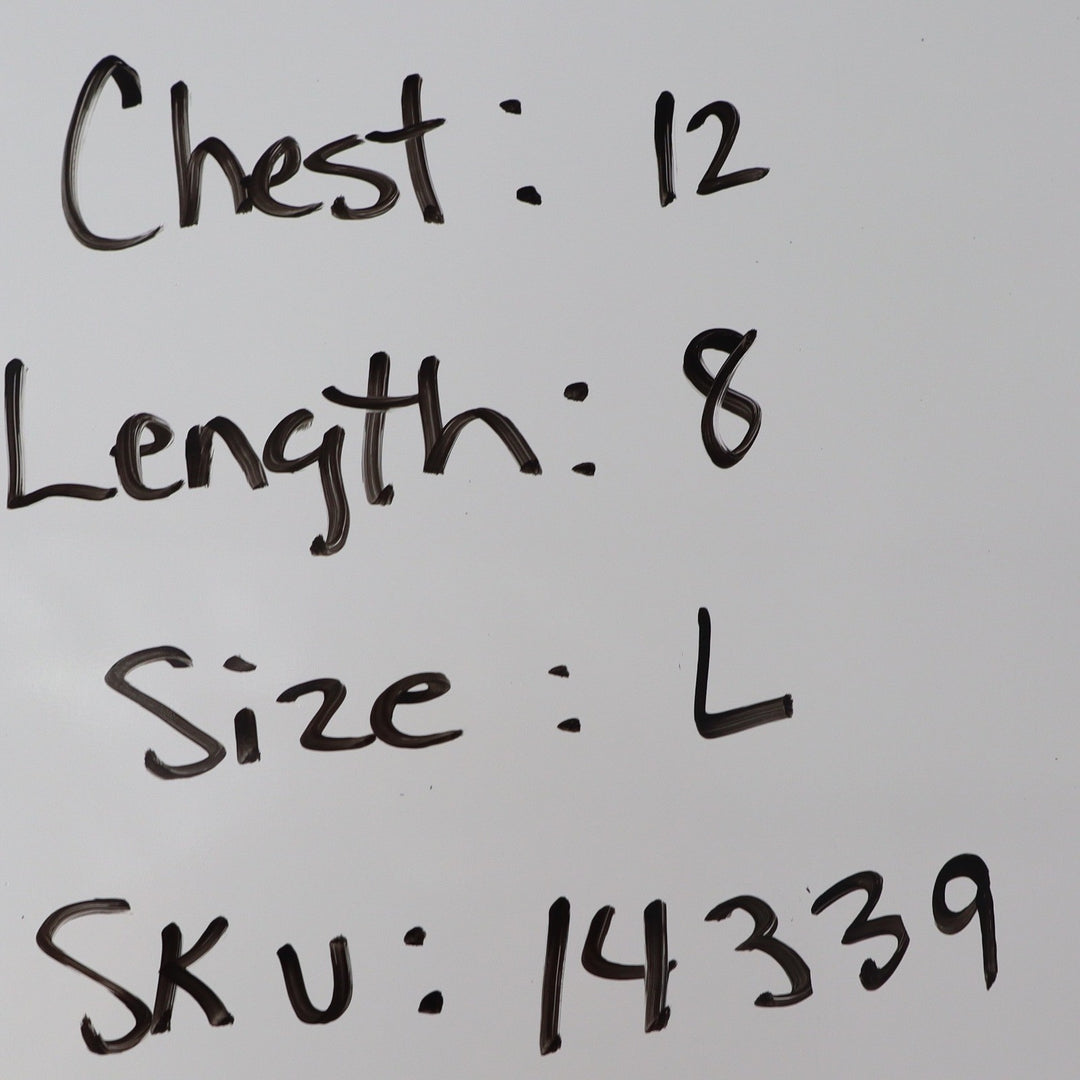 Chest: 12
Length: 8
Size: L
SKU: 14339